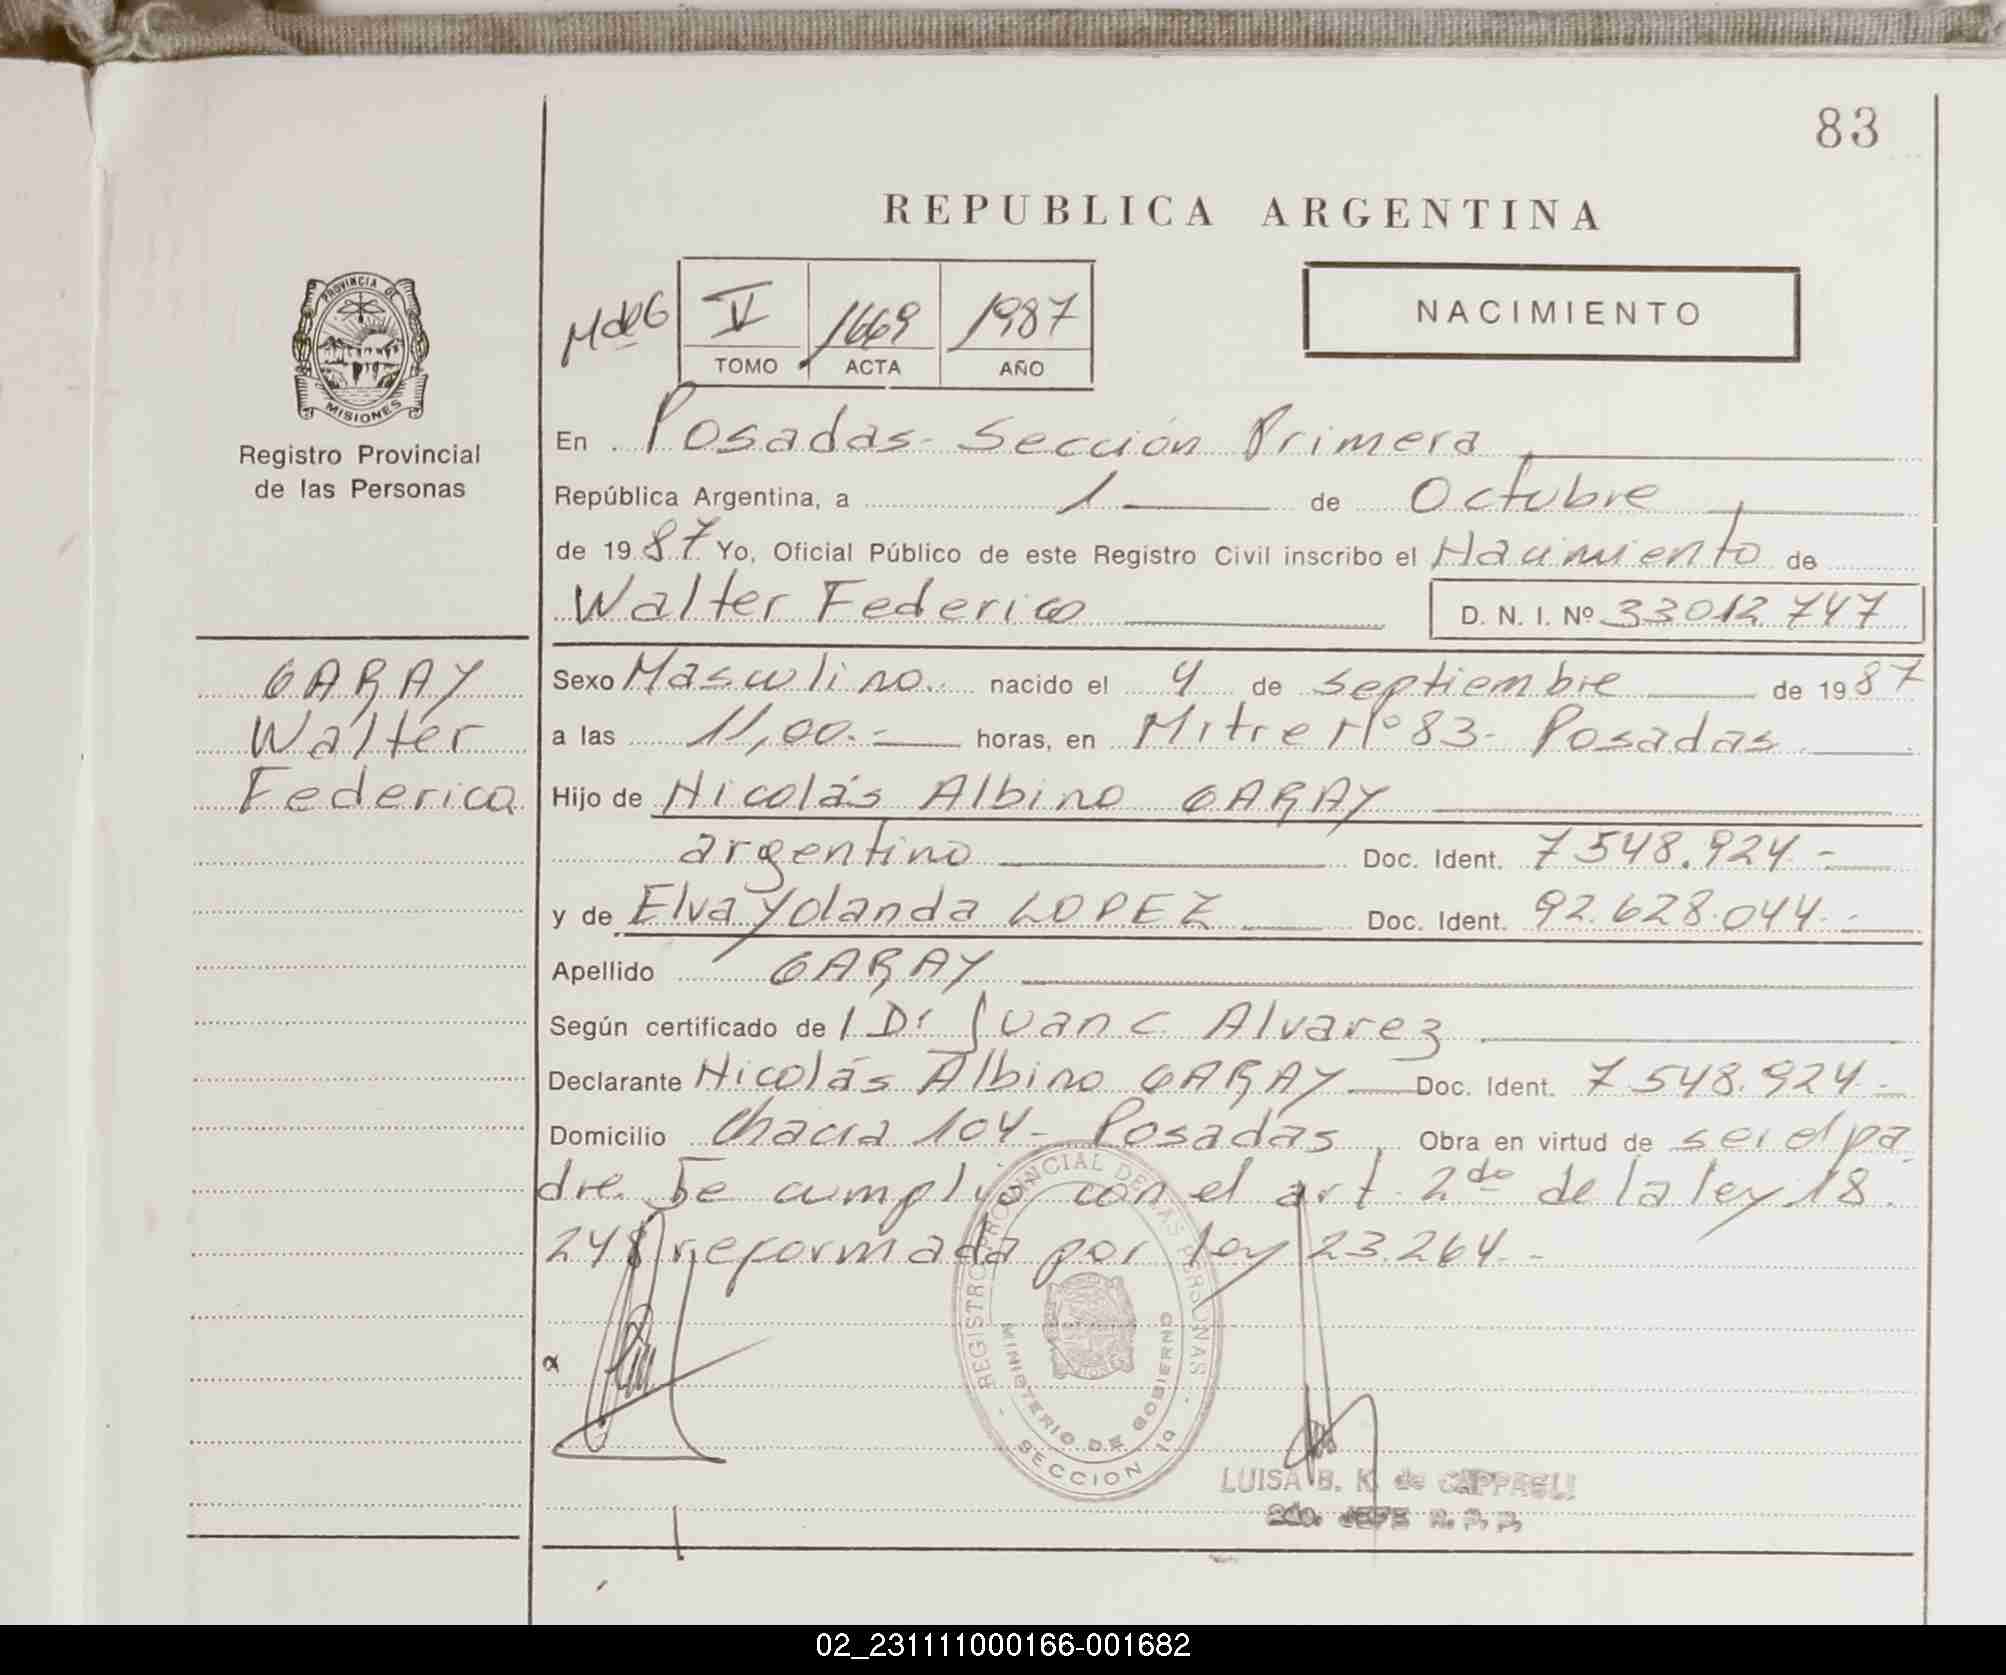 83
REPUBLICA ARGENTINA
PROVINCIA DE
MISIONES
Registro Provincial
de las Personas
M de G
V 1669 1987
TOMO ACTA AÑO
NACIMIENTO
En Posadas - Sección Primera
República Argentina, a 1 de Octubre
de 1987 Yo, Oficial Público de este Registro Civil inscribo el Nacimiento de
Walter Federico D. N. I. Nº 33012747
GARAY
Walter
Federico
Sexo Masculino. nacido el 4 de Septiembre de 1987
a las 11,00.- horas, en Mitre Nº 83 - Posadas
Hijo de Nicolás Albino GARAY
argentino Doc. Ident. 7548.924 -
y de Elva Yolanda LOPEZ Doc. Ident. 92.628.044. -
Apellido GARAY
Según certificado de l Dr Juan C. Alvarez
Declarante Nicolás Albino GARAY Doc. Ident. 7548.924 -
Domicilio Chacra 104 - Posadas Obra en virtud de ser el pa
dre. Se cumplió con el art. 2do de la ley 18.
248 reformada por ley 23.264. -
REGISTRO PROVINCIAL DE LAS PERSONAS
MINISTERIO DE GOBIERNO
SECCION 1a
LUISA B. K. de CAPPAGLI
2do. JEFE R. P. P.
02_231111000166-001682